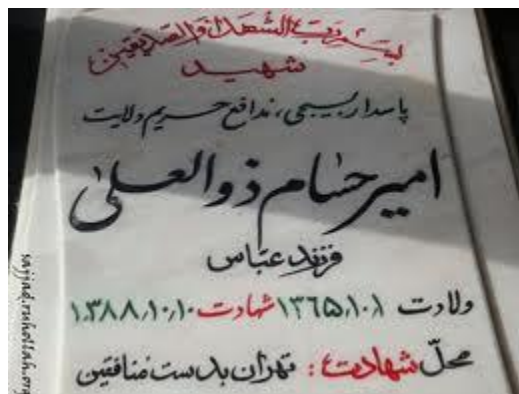 بسم رب الشهداء والصدیقین
شهید
پاسدار بسیجی، مدافع حریم ولایت
امیر حسام ذوالعلی
فرزند عباس
ولادت ۱۳۶۵،۱۰،۱ شهادت ۱۳۸۸،۱۰،۱۰
محلّ شهادت: تهران بدست منافقین
sajjad.ruhollah.org